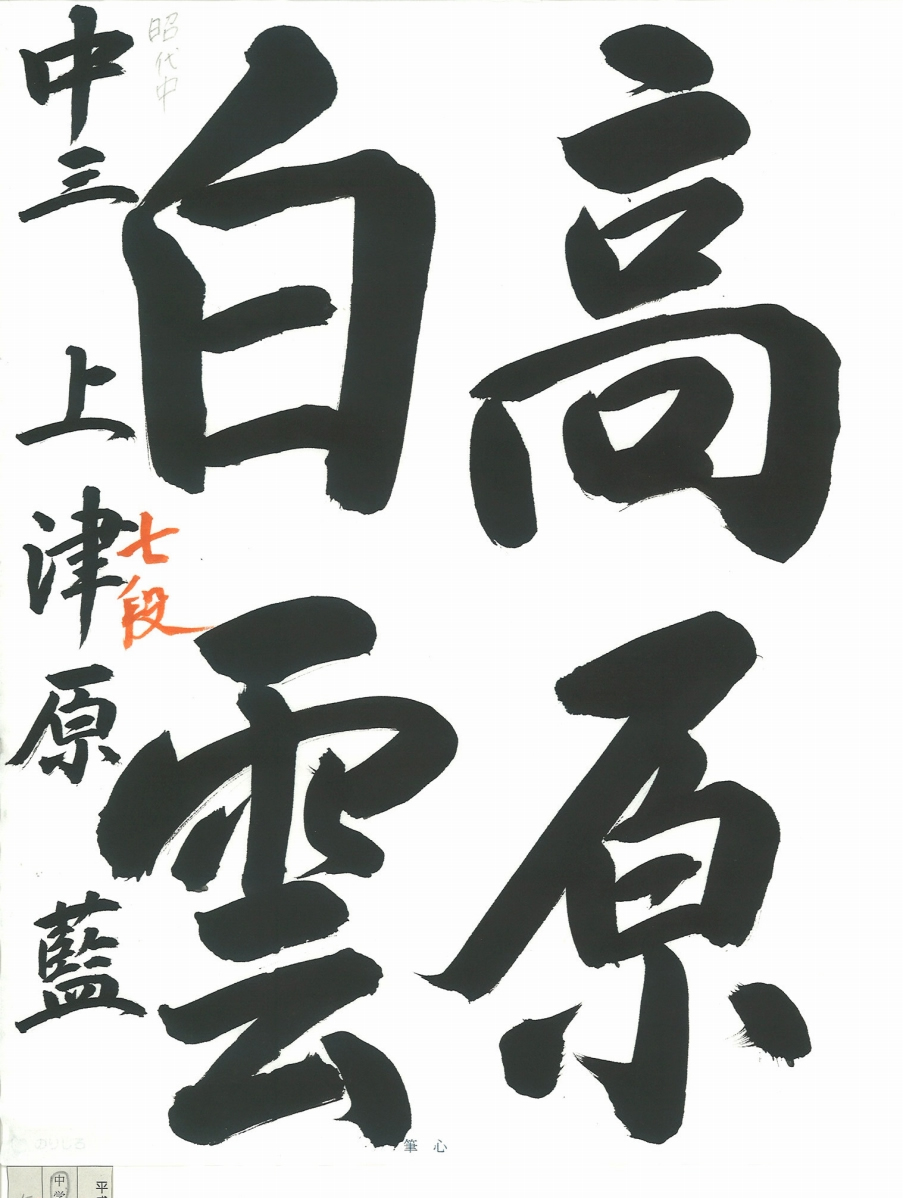 高原
白雲
七段
昭代中
中三 上津原 藍
筆心
かりしる
中学
平成